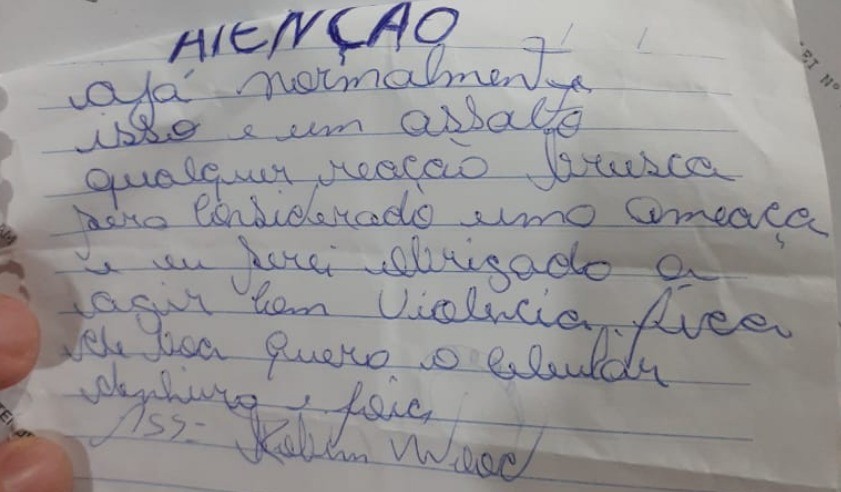 ATENÇÃO
ajá normalmente
isso e um assalto
qualquer reação brusca
sera considerado uma ameaça
e eu serei obrigado a
agir com Violencia. fica
de boa quero o celular
dinheiro e joia
Ass: Robin Wood
EI Nº